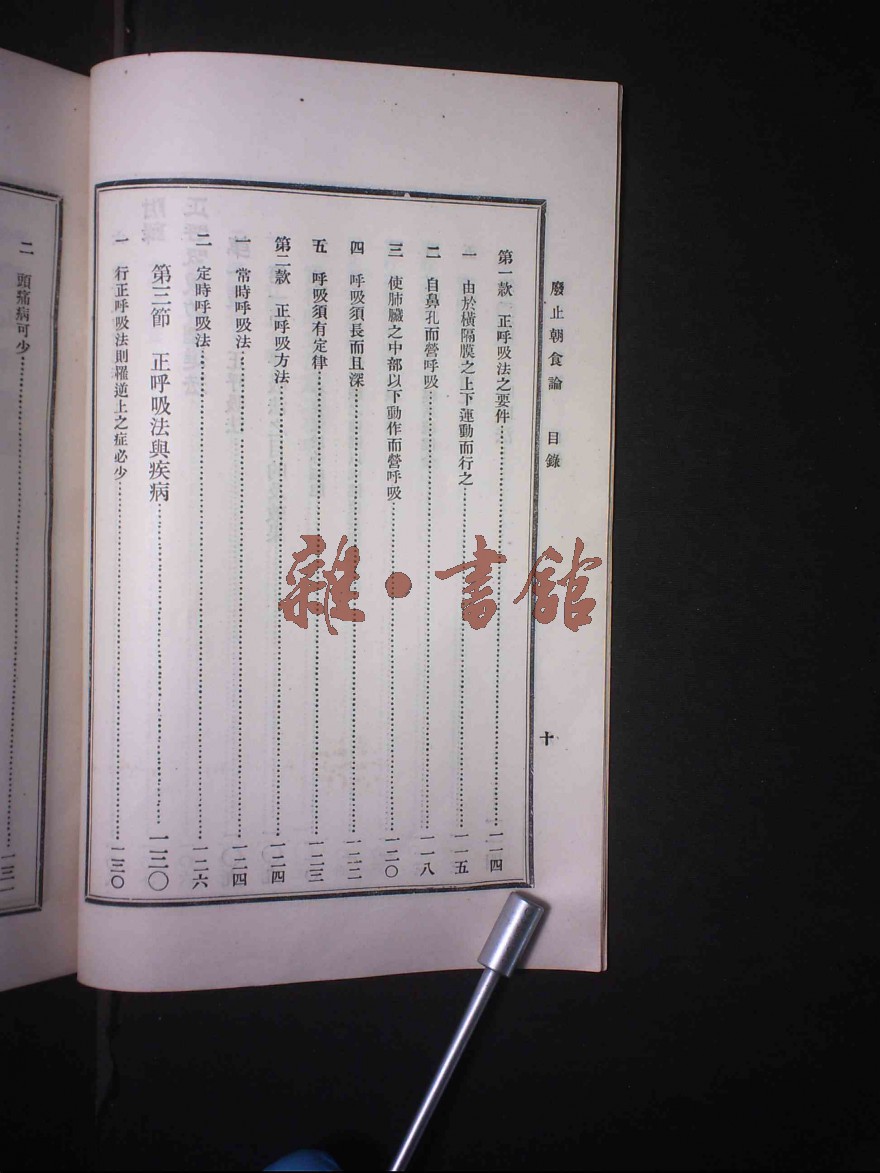 廢止朝食論 目錄
十
第一款 正呼吸法之要件……一一四
一 由於橫隔膜之上下運動而行之……一一五
二 自鼻孔而營呼吸……一一八
三 使肺臟之中部以下動作而營呼吸……一二〇
四 呼吸須長而且深……一二二
五 呼吸須有定律……一二三
第二款 正呼吸方法……一二四
一 常時呼吸法……一二四
二 定時呼吸法……一二六
第三節 正呼吸法與疾病……一三〇
一 行正呼吸法則罹逆上之症必少……一三〇
二 頭痛病可少……一三一
雜·書館